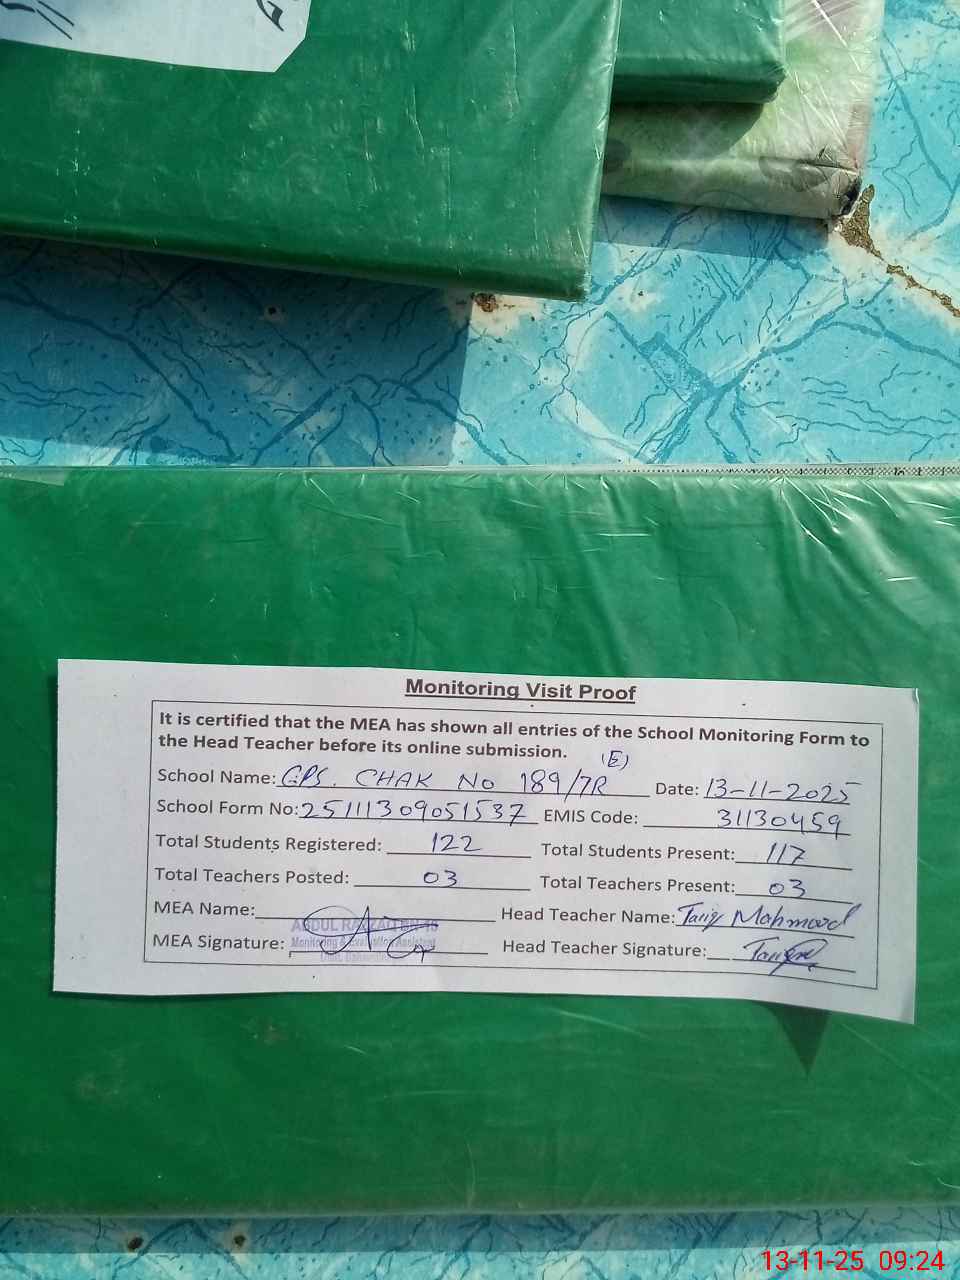 Monitoring Visit Proof
It is certified that the MEA has shown all entries of the School Monitoring Form to
the Head Teacher before its online submission.
School Name: GPS. CHAK No 189/7R (E) Date: 13-11-2025
School Form No: 25111309051537 EMIS Code: 31130459
Total Students Registered: 122 Total Students Present: 117
Total Teachers Posted: 03 Total Teachers Present: 03
MEA Name: ABDUL RAZZAQ Head Teacher Name: Tariq Mahmood
Monitoring & Evaluation Assistant
MEA Signature: Head Teacher Signature:
13-11-25 09:24